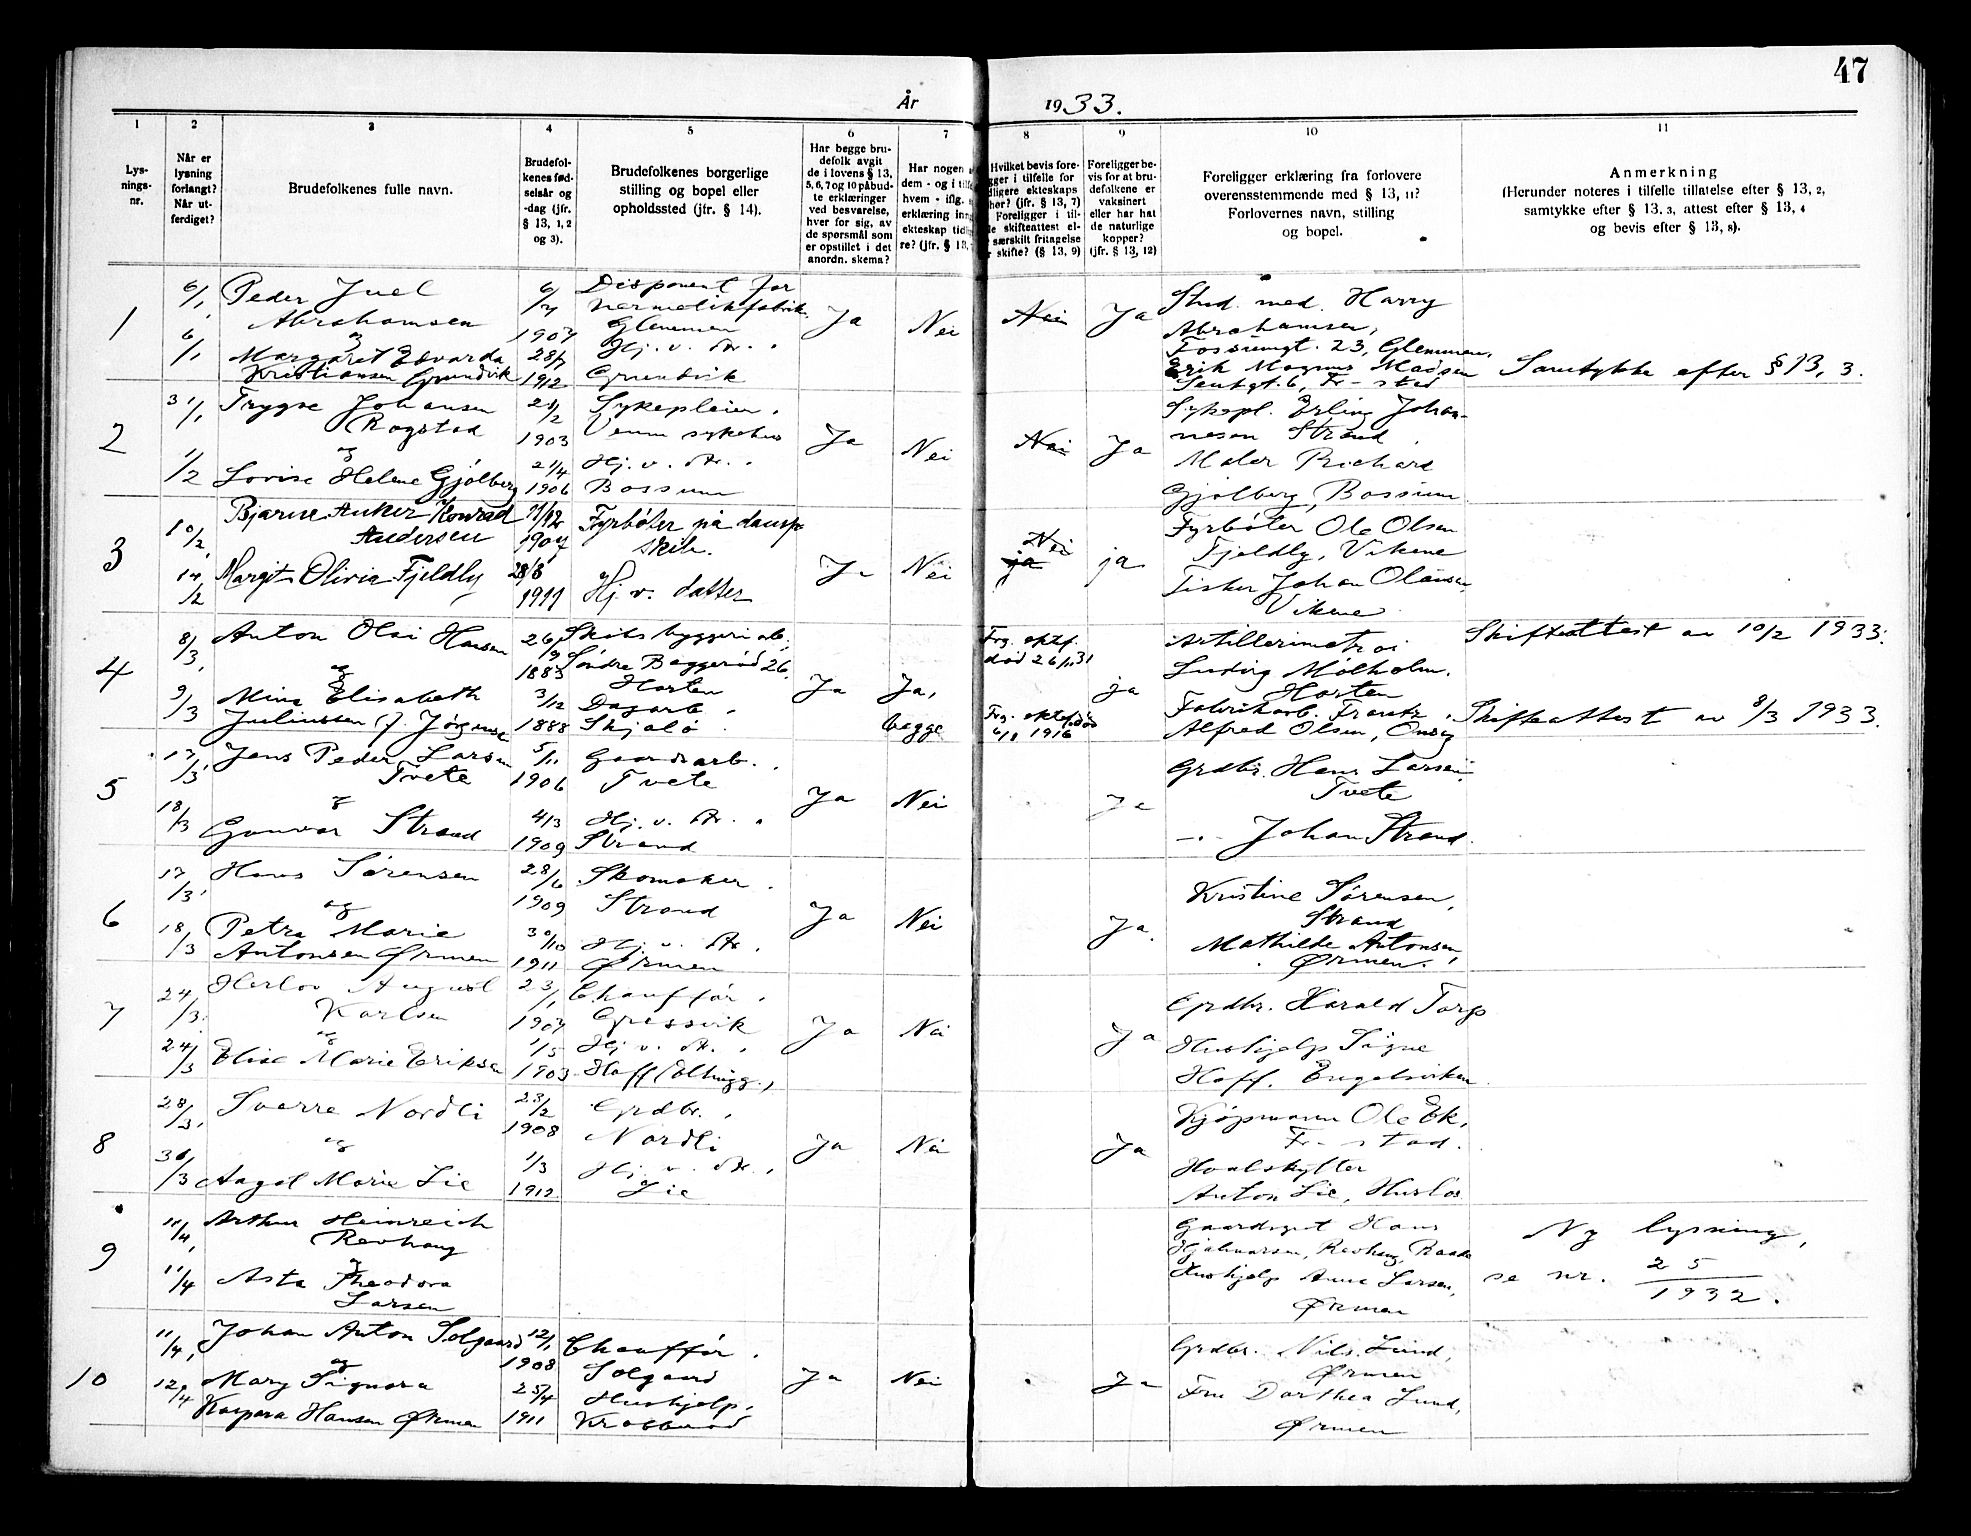 47
År 1933.
1 2 3 4 5 6 7 8 9 10 11
Lys-
nings-
nr.
Når er
lysning
forlangt?
Når ut-
ferdiget?
Brudefolkenes fulle navn.
Brudefol-
kenes fød-
selsår og
-dag (jfr.
§ 13, 1, 2
og 3).
Brudefolkenes borgerlige
stilling og bopel eller
opholdssted (jfr. § 14).
Har begge bru-
defolk avgit
de i lovens § 13,
5, 6, 7 og 10 påbud-
te erklæringer
ved besvarelse,
hver for sig, av
de spørsmål som
er opstillet i det
anordn. skema?
Har nogen
dem - og i
hvem - iflg.
erklæring
ekteskap
re? (jfr. § 13,
Hvilket bevis fore-
gger i tilfelle for
dligere ekteskaps
hør? (jfr. § 13, 7)
Foreligger i til-
e skifteattest el-
særskilt fritagelse
skifte? (§ 13, 9)
Foreligger be-
vis for at bru-
defolkene er
vaksinert
eller har hat
de naturlige
kopper?
(jfr. § 13, 12)
Foreligger erklæring fra forlovere
overensstemmende med § 13, 11?
Forlovernes navn, stilling
og bopel.
Anmerkning
(Herunder noteres i tilfelle tillatelse efter § 13, 2,
samtykke efter § 13, 3, attest efter § 13, 4
og bevis efter § 13, 8).
1
6/1,
6/1
Peder Juel
Abrahamsen
og
Margaret Edvarda
Kristiansen Grundvik
6/7
1907
28/7
1912
Disponent for
hermetikfabrik
Glemmen
Hj. v. dr.
Grundvik
Ja
Nei
Nei
Ja
Stud. med. Harry
Abrahamsen,
Fossumgt. 23, Glemmen,
Erik Magnus Madsen
6, Fr-stad
Samtykke efter § 13, 3.
2
31/1
1/2
Trygve Johansen
Rogstad
og
Lovise Helene Gjølberg
21/2
1903
21/4
1906
Sykepleier,
Veum sykehus
Hj. v. dr.
Bossum
Ja
Nei
Nei
Ja
Sykepl. Erling Johan-
nesen Strand
Maler Richard
Gjølberg, Bossum
3
10/2,
14/2
Bjarne Anker Konrad
Andersen
Margit Olivia Fjeldly
11/12
1907
28/8
1911
Fyrbøter på damp-
skib.
Hj. v. datter
Ja
Nei
Nei
ja
ja
Fyrbøter Ole Olsen
Fjeldly, Vikene
Fisker Johan Olausen,
Vikene
4
8/3,
9/3
Anton Olai Hansen
og
Mina Elisabeth
Juliussen f. Jørgensen
26/9
1883
3/12
1888
Skibsbyggeriarb.
Søndre Baggerød 26
Horten
Dagarb.
Skjælø
Ja
Ja,
begge
Frg. ektef.
død 26/1 31
Frg. ektef. død
6/11 1916
ja
Artillerimatros
Ludvig Mølholm.
Horten
Fabrikarb. Frantz
Alfred Olsen, Onsøy
Skifteattest av 10/2 1933.
Skifteattest av 8/3 1933.
5
17/3,
18/3
Jens Peder Larsen
Tvete
og
Gunvor Strand
5/11
1906
4/3
1909
Gaardsarb.
Tvete
Hj. v. dr.
Strand
Ja
Nei
Ja
Grdbr. Hans Larsen
Tvete
-"- Johan Strand.
6
17/3,
18/3
Hans Sørensen
og
Petra Marie
Antonsen Ørmen
28/6
1909
30/10
1911
Skomaker
Strand
Hj. v. dr.
Ørmen
Ja
Nei
Ja.
Kristine Sørensen,
Strand
Mathilde Antonsen,
Ørmen.
7
24/3.
24/3
Herlov August
Karlsen
og
Elise Marie Eriksen
23/1
1907
1/5
1903
Chauffør,
Gressvik
Hj. v. dr.
Hoff
Ja
Nei
Ja
Grdbr. Harald Torp
Hushjelp Signe
Hoff. Engelsviken
8
28/3,
30/3
Sverre Nordli
og
Aagot Marie Lie
23/2
1908
1/3
1912
Grdbr.
Nordli
Hj. v. dr.
Lie
Ja
Nei
Ja
Kjøpmann Ole Ek,
Fr-stad.
Hvalskytter
Anton Lie, Huslös
9
11/4,
11/4
Arthur Heinreich
Revhaug
og
Asta Theodora
Larsen
Hans
Hjalmarsen, Revhaug,
Hushjelp Anna Larsen,
Ørmen
Ny lysning,
se nr. 25/1932.
10
11/4,
12/4
Johan Anton Solgaard
og
Mary Signora
Kaspara Hansen Ørmen
12/1
1908
25/4
1911
Chauffør,
Solgaard
Hushjelp,
Krabberød
Ja
Nei
Ja
Grdbr. Nils Lund,
Ørmen
Fru Dorthea Lund,
Ørmen